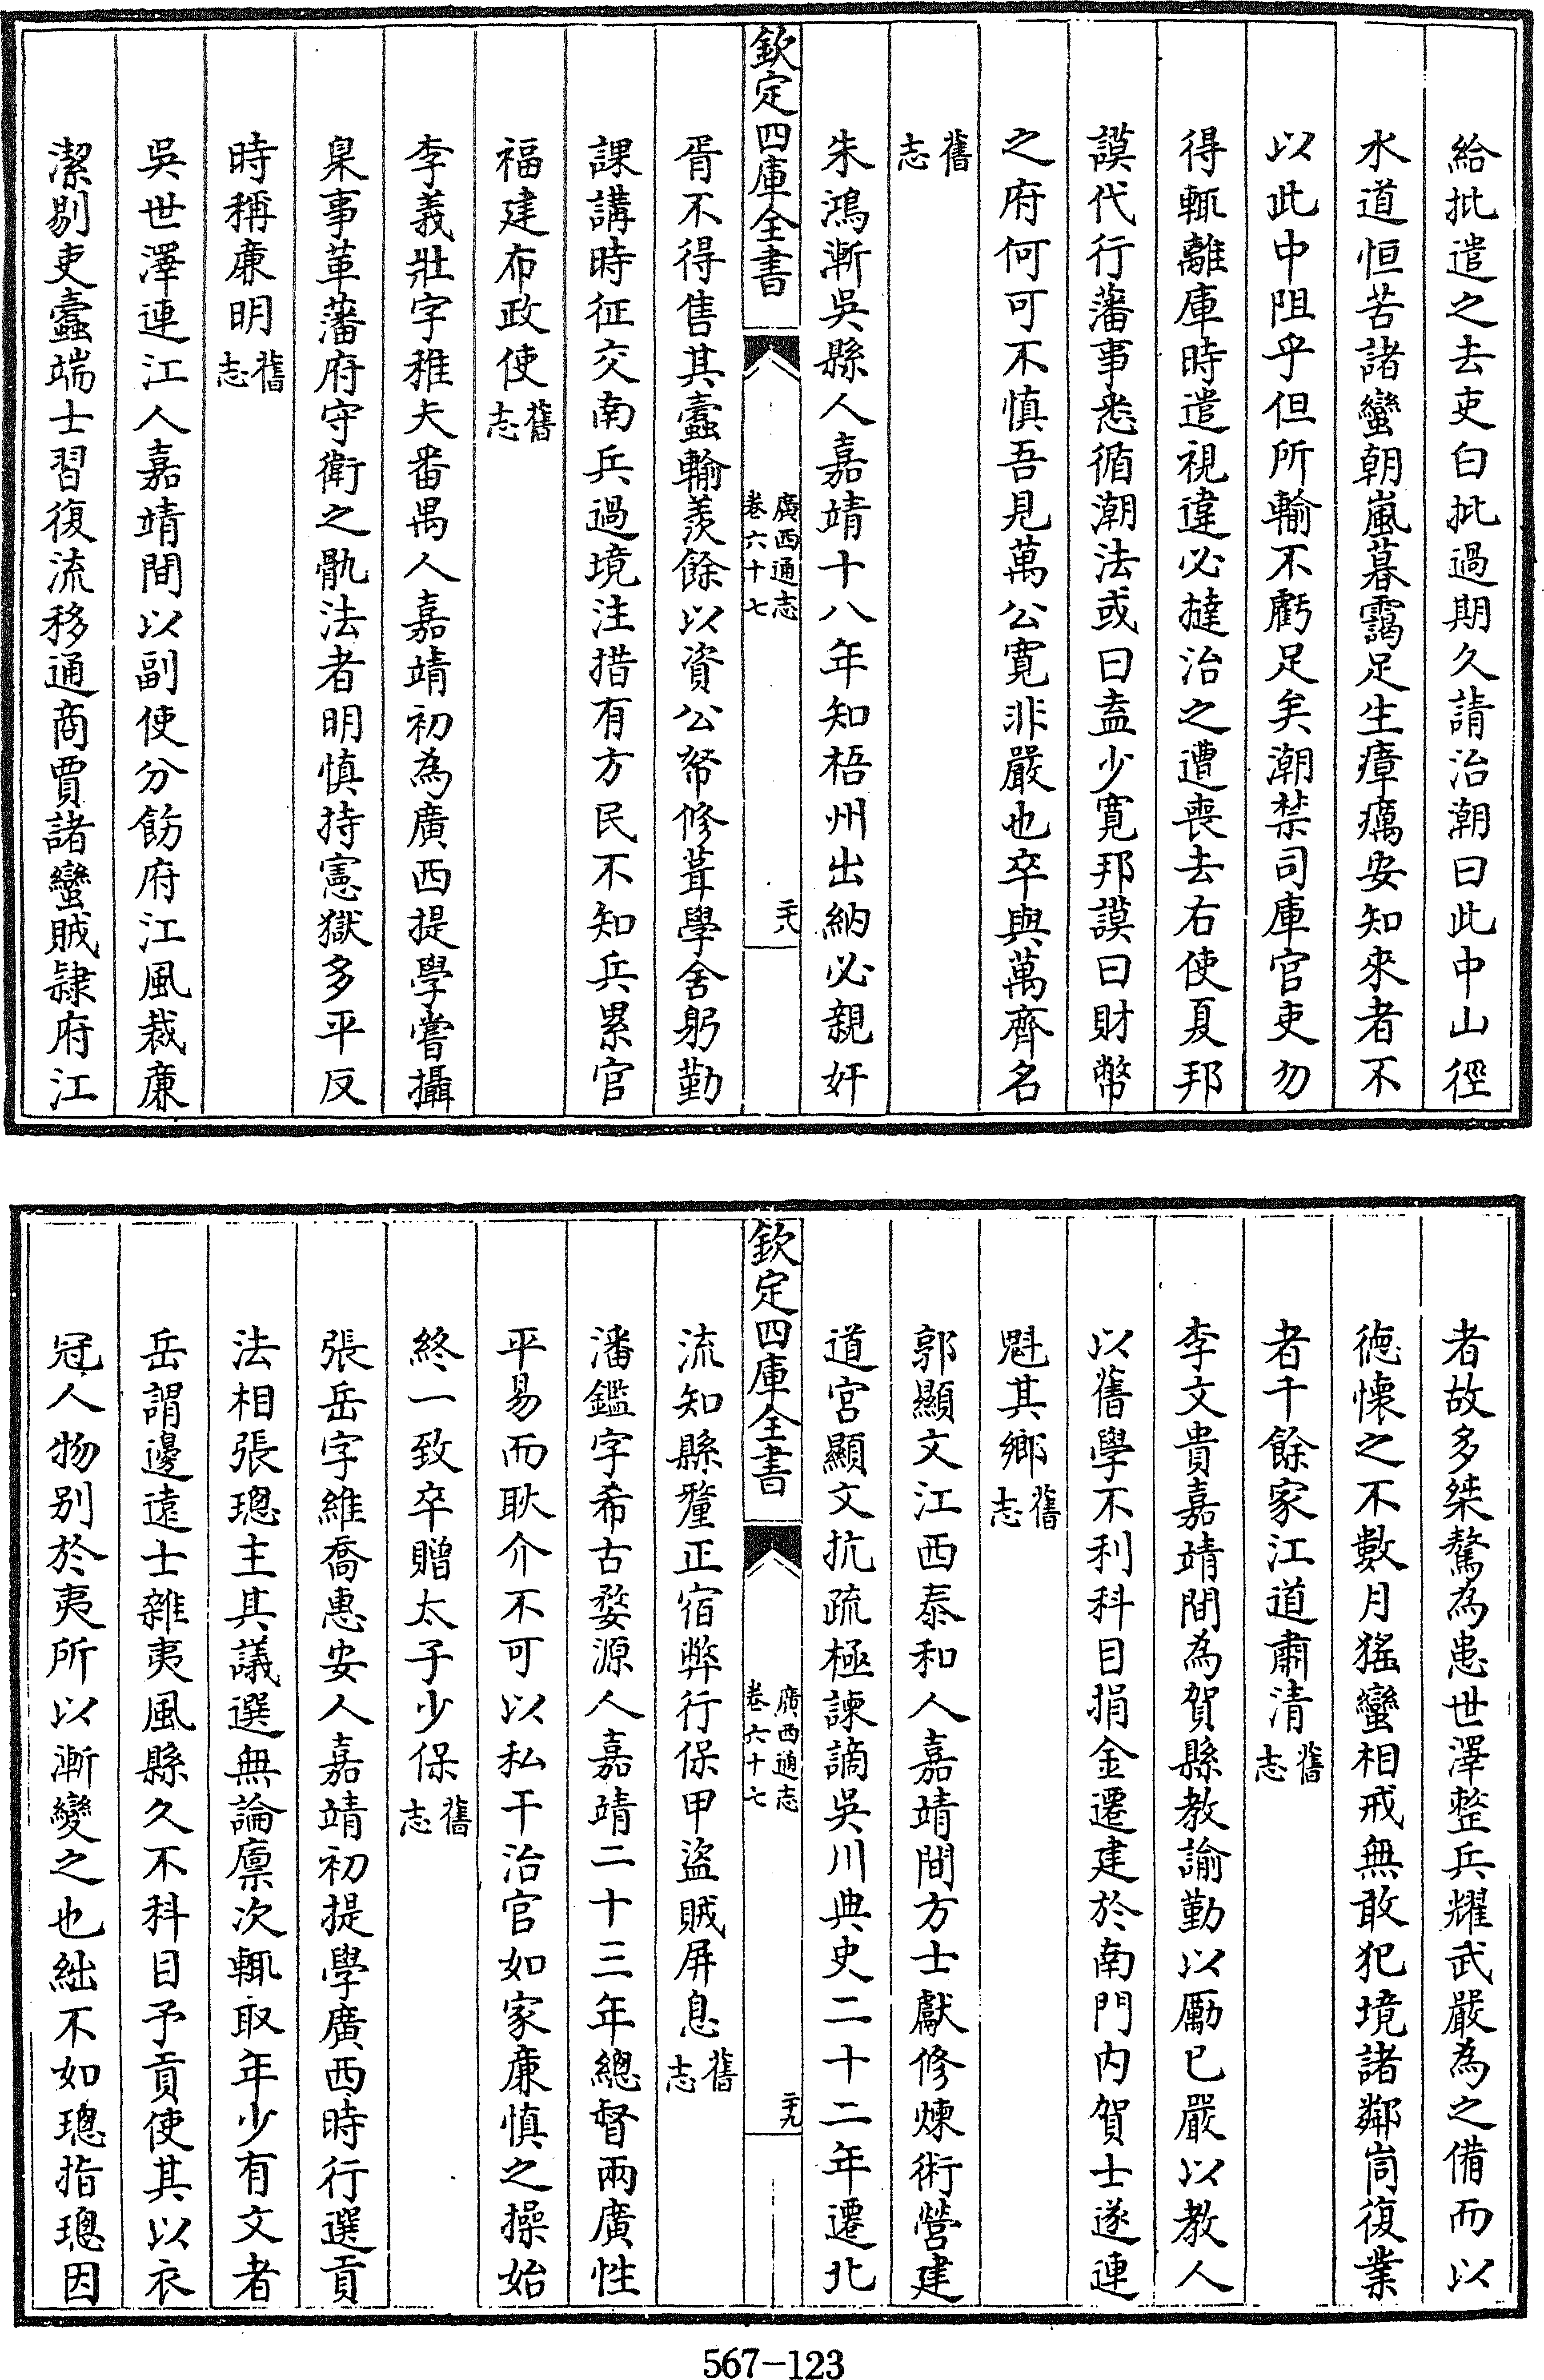 給批遣之去吏白批過期久請治潮曰此中山徑
水道恒苦諸蠻朝嵐暮靄足生瘴癘安知來者不
以此中阻乎但所輸不虧足矣潮禁司庫官吏勿
得輒離庫時遣視違必撻治之遭喪去右使夏邦
謨代行藩事悉循潮法或曰盍少寛邦謨曰財幣
之府何可不慎吾見萬公寛非嚴也卒與萬齊名
舊志
朱鴻漸吳縣人嘉靖十八年知梧州出納必親奸
欽定四庫全書
廣西通志
卷六十七
二十八
胥不得售其蠧輸羨餘以資公帑修葺學舍躬勤
課講時征交南兵過境注措有方民不知兵累官
福建布政使舊志
李義壯字稚夫番禺人嘉靖初為廣西提學嘗攝
臬事革藩府守衛之骫法者明慎持憲獄多平反
時稱廉明舊志
吳世澤連江人嘉靖間以副使分飭府江風裁廉
潔剔吏蠧端士習復流移通商賈諸蠻賊隷府江
者故多桀驁為患世澤整兵耀武嚴為之備而以
德懷之不數月猺蠻相戒無敢犯境諸鄰峝復業
者千餘家江道肅清舊志
李文貴嘉靖間為賀縣教諭勤以勵已嚴以教人
以舊學不利科目捐金遷建於南門内賀士遂連
魁其鄉舊志
郭顯文江西泰和人嘉靖間方士獻修煉術營建
道宫顯文抗疏極諫謫吳川典史二十二年遷北
欽定四庫全書
廣西通志
卷六十七
二十九
流知縣釐正宿弊行保甲盜賊屏息舊志
潘鑑字希古婺源人嘉靖二十三年總督兩廣性
平易而耿介不可以私干治官如家廉慎之操始
終一致卒贈太子少保舊志
張岳字維喬惠安人嘉靖初提學廣西時行選貢
法相張璁主其議選無論廪次輒取年少有文者
岳謂邊遠士雜夷風縣久不科目予貢使其以衣
冠人物别於夷所以漸變之也絀不如璁指璁因
567-123